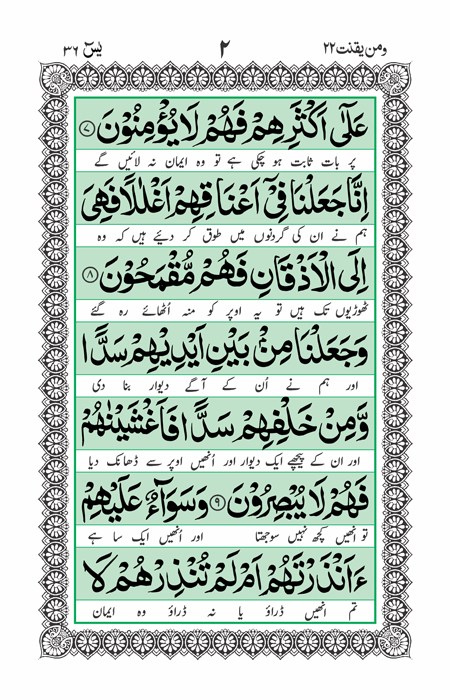 ومن یقنت ۲۲ ۲ یٰسٓ ۳۶
عَلٰٓى اَكْثَرِهِمْ فَهُمْ لَا يُؤْمِنُوْنَ ۷
پر بات ثابت ہو چکی ہے تو وہ ایمان نہ لائیں گے
اِنَّا جَعَلْنَا فِىْٓ اَعْنَاقِهِمْ اَغْلٰلًا فَهِىَ
ہم نے ان کی گردنوں میں طوق کر دیئے ہیں کہ وہ
اِلَى الْاَذْقَانِ فَهُمْ مُّقْمَحُوْنَ ۸
ٹھوڑیوں تک ہیں تو یہ اوپر کو منہ اُٹھائے رہ گئے
وَجَعَلْنَا مِنْۢ بَيْنِ اَيْدِيْهِمْ سَدًّا
اور ہم نے اُن کے آگے دیوار بنا دی
وَّمِنْ خَلْفِهِمْ سَدًّا فَاَغْشَيْنٰهُمْ
اور ان کے پیچھے ایک دیوار اور اُنھیں اوپر سے ڈھانک دیا
فَهُمْ لَا يُبْصِرُوْنَ ۹ وَسَوَآءٌ عَلَيْهِمْ
تو اُنھیں کچھ نہیں سوجھتا اور اُنھیں ایک سا ہے
ءَاَنْذَرْتَهُمْ اَمْ لَمْ تُنْذِرْهُمْ لَا
تم انھیں ڈراؤ یا نہ ڈراؤ وہ ایمان